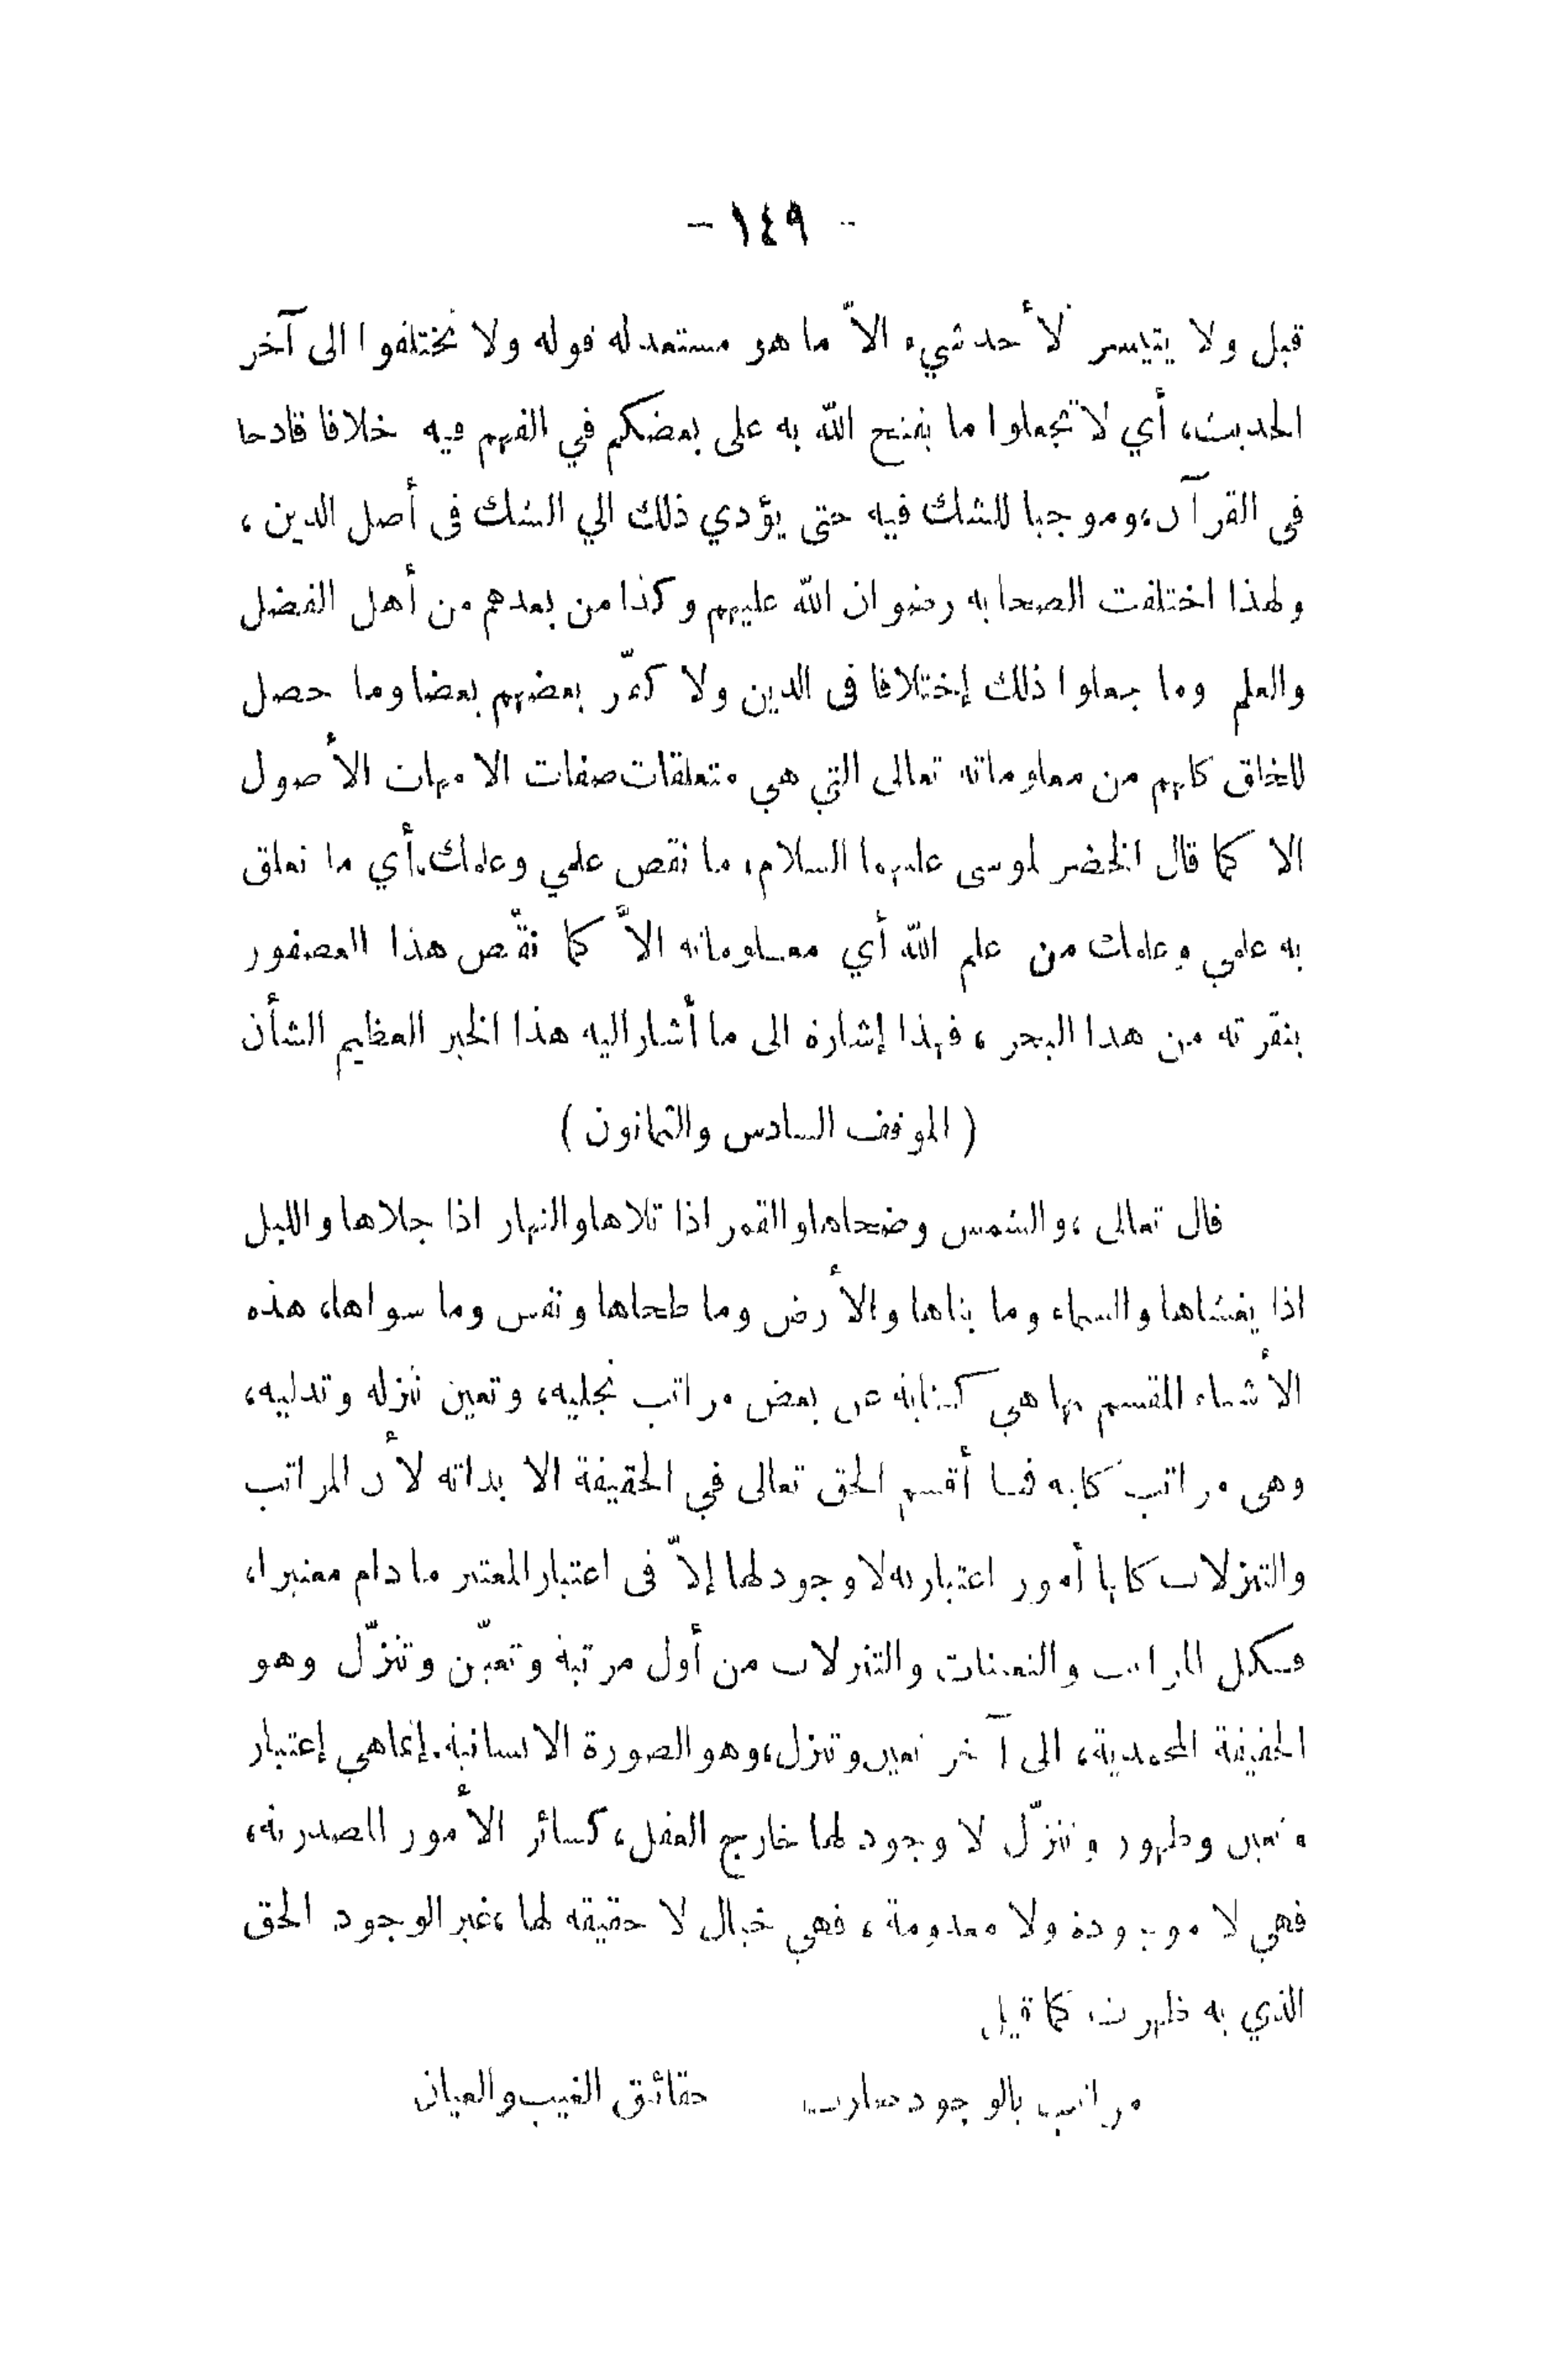 - ١٤٩ -
قبل ولا يتيسر لأحد شيء الاّ ما هو مستعد له قوله ولا تختلفوا الى آخر
الحديث، أي لا تجعلوا ما يفتح الله به على بعضكم في الفهم فيه خلافا قادحا
فى القرآن، وموجبا للشك فيه حتى يؤدي ذلك الي الشك فى أصل الدين ،
ولهذا اختلفت الصحابه رضوان الله عليهم وكذا من بعدهم من أهل الفضل
والعلم وما جعلوا ذلك إختلافا فى الدين ولا كفّر بعضهم بعضا وما حصل
للخلق كلهم من معلوماته تعالى التي هي متعلقات صفات الامهات الأصول
الا كما قال الخضر لموسى عليهما السلام، ما نقص علمي وعلمك، أي ما تعلق
به علمي وعلمك من علم الله أي معلوماته الاّ كما نقّص هذا العصفور
بنقرته من هدا البحر ، فهذا إشارة الى ما أشار اليه هذا الخبر العظيم الشأن
( الموقف السادس والثمانون )
قال تعالى ، والشمس وضحاها والقمر اذا تلاها والنهار اذا جلاها والليل
اذا يغشاها والسماء وما بناها والأرض وما طحاها ونفس وما سواها، هذه
الأشياء المقسم بها هي كناية عن بعض مراتب تجليه، وتعين تنزله وتدليه،
وهى مراتب كليه فما أقسم الحق تعالى في الحقيقة الا بذاته لأن المراتب
والتنزلات كلها أمور اعتباريه لا وجود لها إلاّ فى اعتبار المعتبر ما دام معتبرا،
فكل المراتب والتعينات والتنزلات من أول مرتبة وتعيّن وتنزّل وهو
الحقيقة المحمدية، الى آخر تعين وتنزل، وهو الصورة الانسانية. إنما هي إعتبار
وتعين وظهور وتنزّل لا وجود لها خارج العقل، كسائر الأمور المصدريه،
فهي لا موجودة ولا معدومة ، فهي خيال لا حقيقه لها ، غير الوجود الحق
الذي به ظهرت كما قيل
مراتب بالوجود صارت حقائق الغيب والعيان